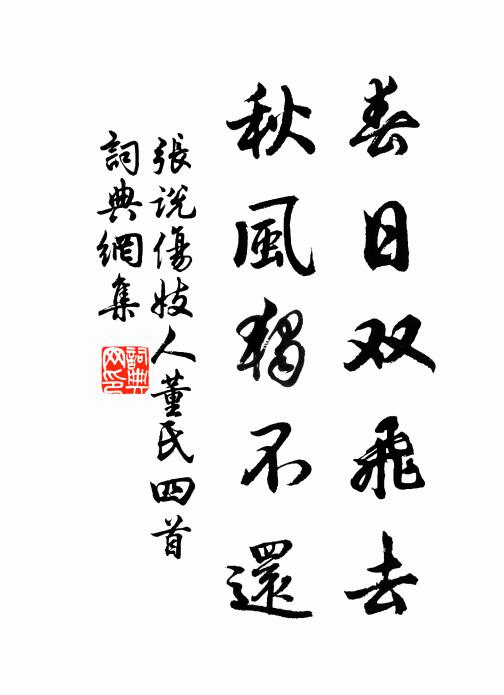 春日双飛去
秋風獨不還
張说傷妓人董氏四首
詞典網集
詞典
网印